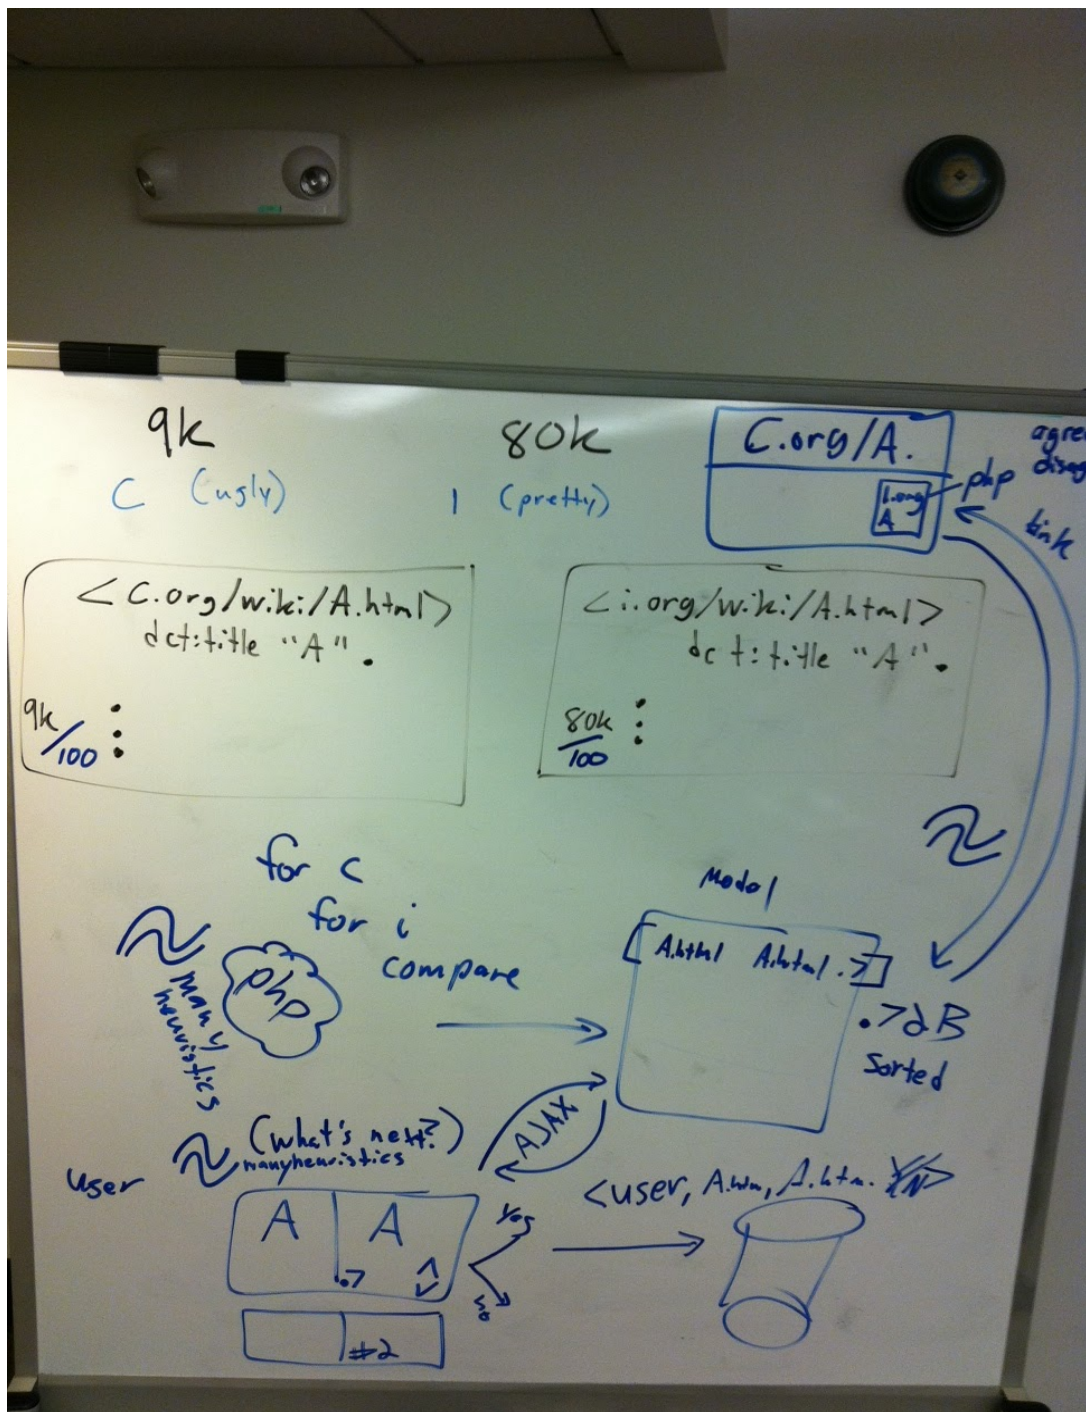 9k
80k
C (ugly)
I (pretty)
C.org/A.
i.org
A
php
agre
disag
link
<C.org/wiki/A.html>
dct:title "A".
9k/100
<i.org/wiki/A.html>
dct:title "A".
80k/100
for c
for i
compare
many
heuristics
php
Model
A.html A.html .7
.7 dB
Sorted
AJAX
user
(what's next?)
many heuristics
A A
.7
Yes
no
#2
<user, A.htm, A.htm. Y/N>